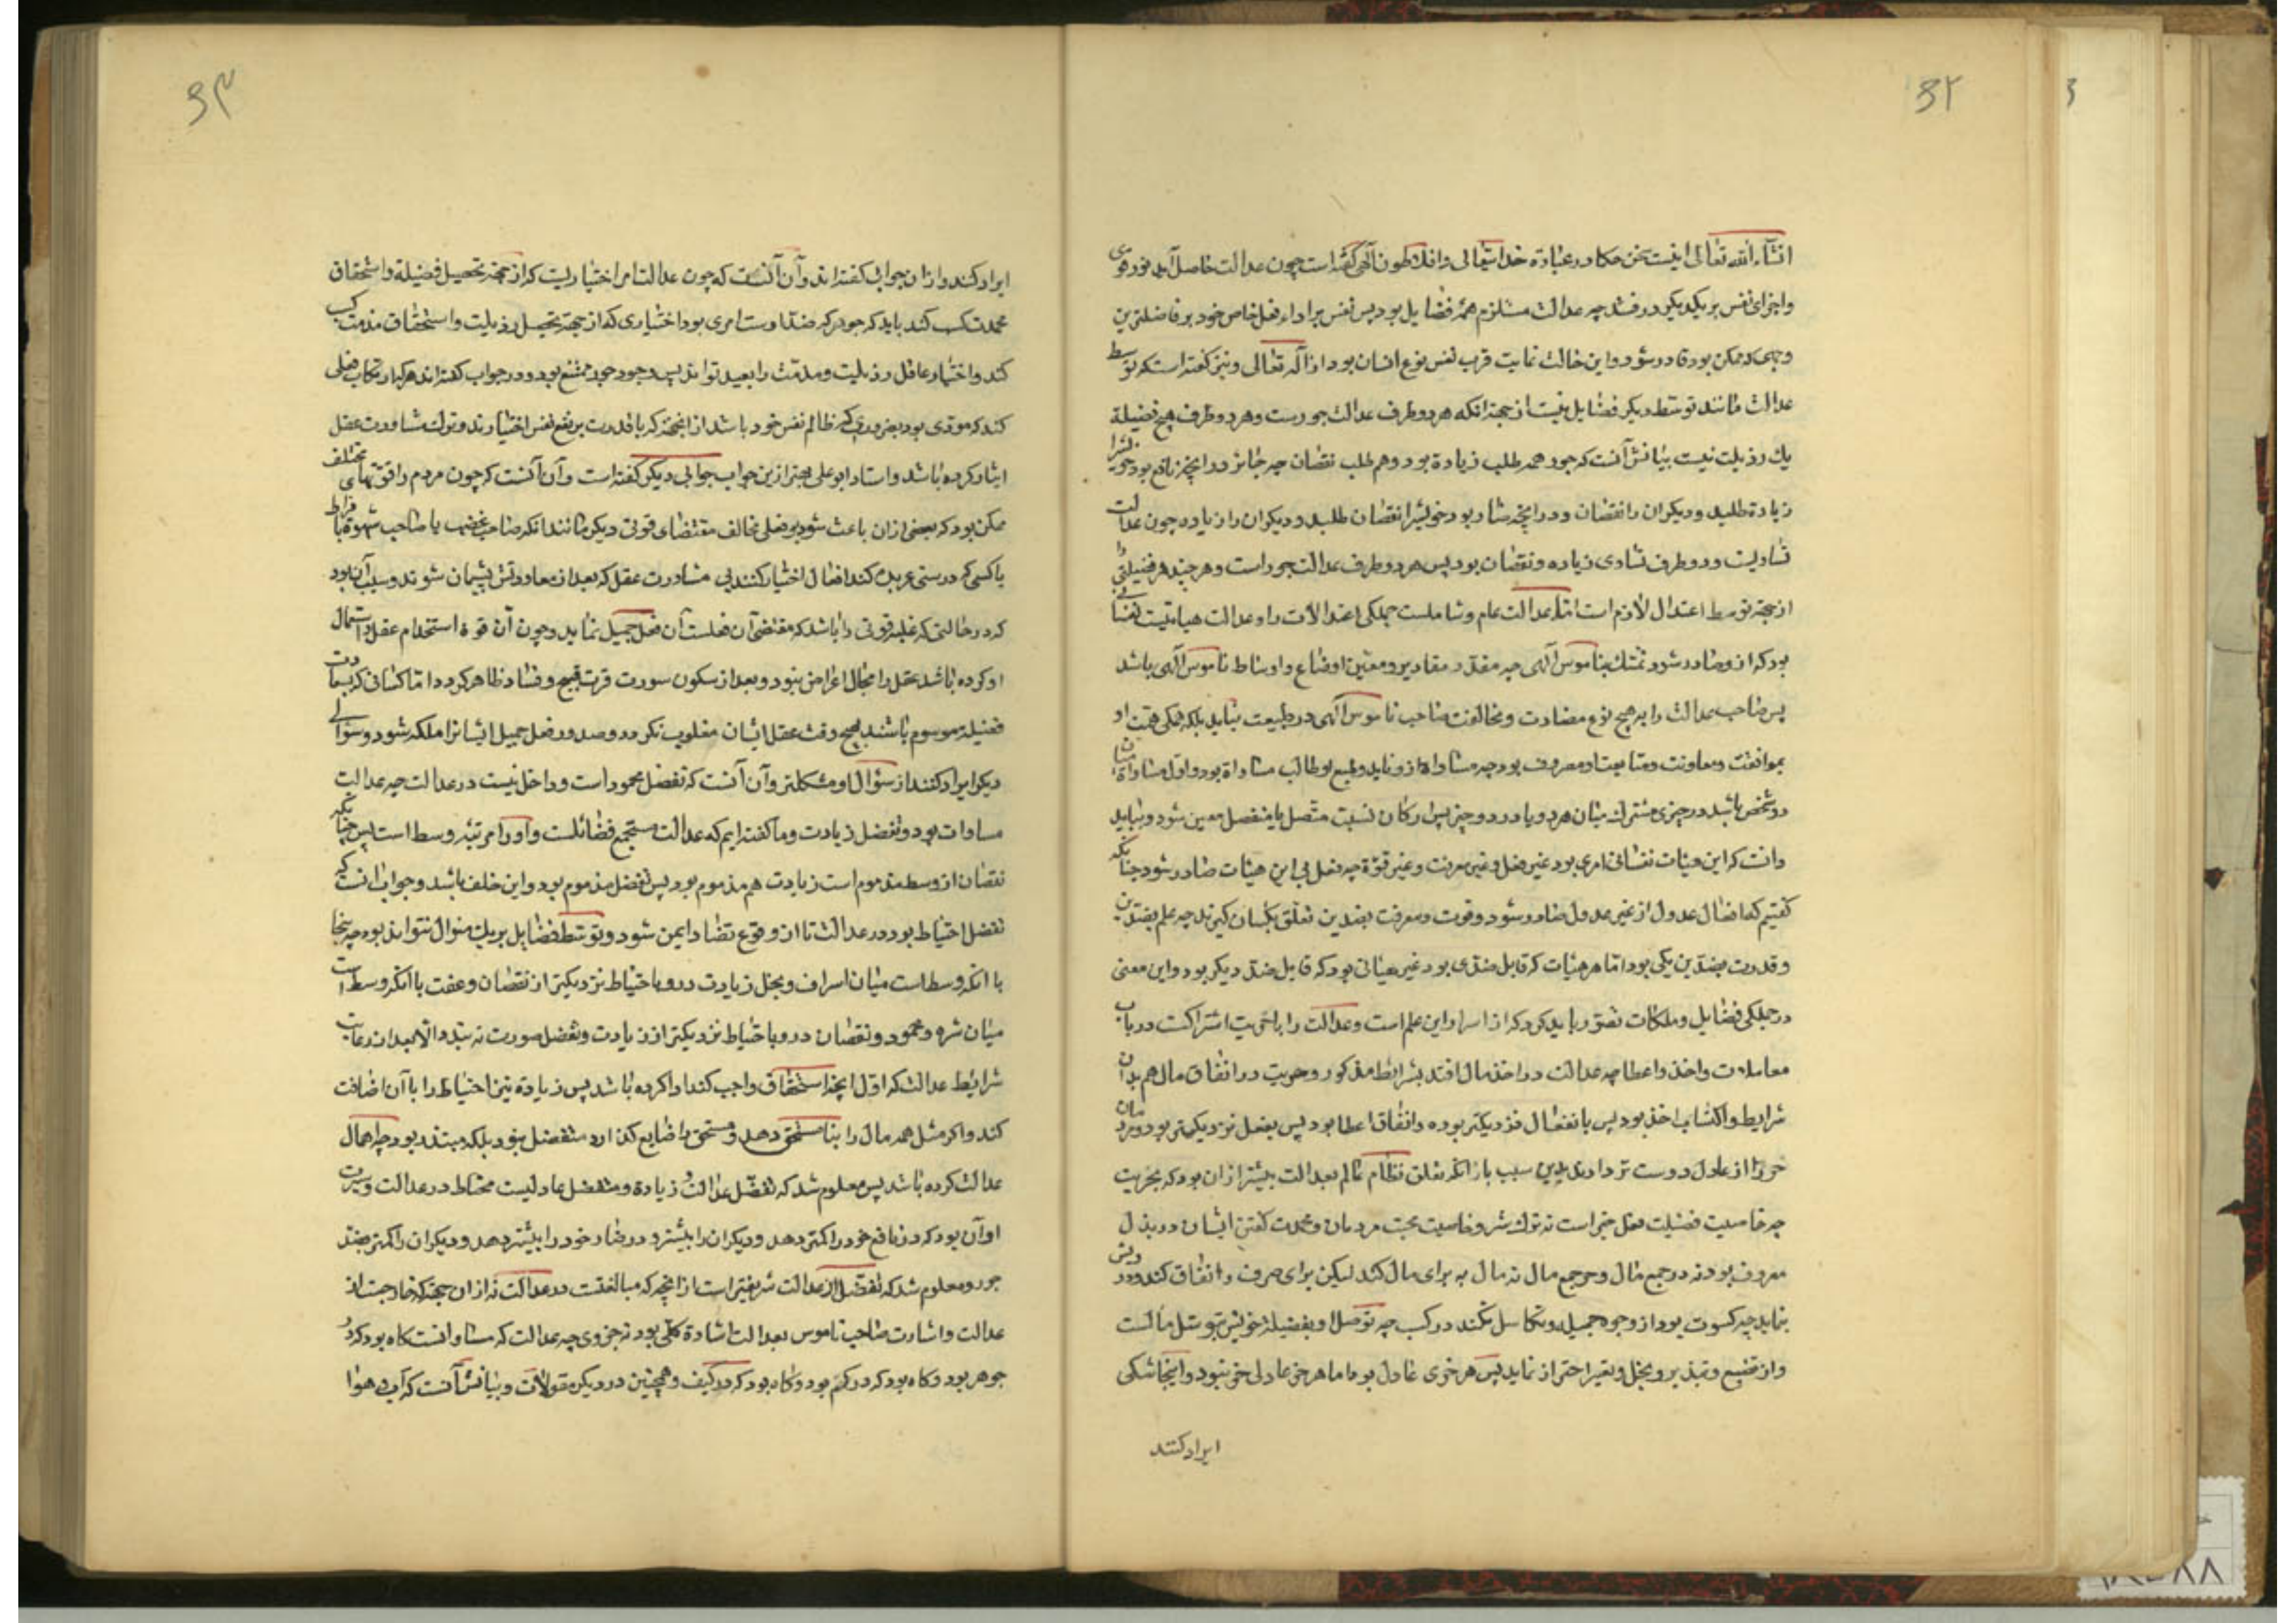 ۶۲
انشاء الله تعالی اینست سخن حکما در عبادة خدایتعالی وافلاطون آلهی کفته است چون عدالت حاصل آید نور قوی
واجزای نفس بر یکدیکر درفشد چه عدالت مستلزم همه فضایل بود پس نفس بر اداء فعل خاص خود بر فاضلترین
وجهی که ممکن بود قادر شود واین حالت غایت قرب نفس نوع انسان بود از اله تعالی ونیز کفته است که توسط
عدالت مانند توسط دیکر فضایل نیست از جهة انکه هر دو طرف عدالت جورست وهر دو طرف هیچ فضیلة
یك رذیلت نیست بیانش آنست که جور هم طلب زیادة بود وهم طلب نقصان چه جائر در انچه نافع بود خویشترا
زیادة طلبد ودیکران را نقصان ودر انچه ضار بود خویشترا نقصان طلبد ودیکران را زیاده چون عدالت
تساویست ودو طرف تساوی زیاده ونقصان بود پس هر دو طرف عدالت جور است وهر چند هر فضیلتی را
از جهة توسط اعتدال لازم است اما عدالت عام وشاملست جملکی اعتدالات را وعدالت هیاتیست نفسانی
بود که از وصادر شود تمسك بناموس آلهی چه مقدر مقادیر ومعین اوضاع واوساط ناموس آلهی باشد
پس صاحب عدالت را بهیچ نوع مضادت ومخالفت صاحب ناموس آلهی در طبیعت نیاید بلکه همکی همت او
بموافقت ومعاونت ومتابعت او مصروف بود چه مساواة ازو یابد وطبع او طالب مساواة بود واول مساواة میان
دو شخص باشد در چیزی مشترك میان هر دو یا در دو چیز پس ارکان نسبت متصل یا منفصل معین شود وبباید
دانست که این هیئات نفسانی امری بود غیر فعل وغیر معرفت وغیر قوة چه فعل بی این هیئات صادر شود چنانکه
کفتیم که افعال عدول از غیر عدول صادر شود وقوت ومعرفت بضدین تعلق یکسان کیرند چه علم بضدین
وقدرت بضدین یکی بود اما هر هیئات که قابل ضدی بود غیر هیاتی بود که قابل ضد دیکر بود واین معنی
در جملکی فضایل وملکات تصور باید کرد که از اسرار این علم است وعدالت را با حریت اشتراکست در باب
معاملات واخذ واعطا چه عدالت در اخذ مال افتد بشرایط مذکور وحریت در انفاق مال هم بدان
شرایط واکتساب اخذ بود پس بانفعال نزدیکتر بود وانفاق اعطا بود پس بفعل نزدیکتر بود ومردمان
حر را از عادل دوست تر دارند بدین سبب باز انکه تعلق نظام عالم بعدالت بیشتر از ان بود که بحریت
چه خاصیت فضیلت فعل خیر است نه ترك شر وخاصیت محبت مردمان ومحمدت کفتن ایشان در بذل
معروف بود نه در جمع مال وحر جمع مال نه مال به برای مال کند لیکن برای صرف وانفاق کند ودرویش
نماند چه کسوب بود از وجوه جمیل وتکاسل نکند در کسب چه توصل او بفضیلة خویش بتوسل مالست
واز تضییع وتبذیر وبخل وتقتیر احتراز نماید پس هر حری عادل بود اما هر عادلی حر نبود واینجا شکی
ایراد کنند
۶۳
ایراد کنند واز ان جواب کفته اند وآن آنست که چون عدالت امر اختیاریست که از جهة تحصیل فضیلة واستحقاق
محمدت کسب کند باید که جور که ضد اوست امری بود اختیاری که از جهة تحصیل رذیلت واستحقاق مذمت کسب
کند واختیار عاقل رذیلت ومذمت را بعید تواند پس وجود جور ممتنع بود ودر جواب کفته اند هر که ارتکاب فعلی
کند که مودی بود بضرری که ظالم نفس خود باشد از انجهة که با قدرت بر نفع نفس اختیار بد وترك مشاورت عقل
ایثار کرده باشد واستاد ابو علی بهتر ازین جواب جوابی دیکر کفته است وآن آنست که چون مردم را قوتهای مختلف
ممکن بود که بعضی ازان باعث شود بر فعلی مخالف مقتضای قوتی دیکر مانند انکه صاحب غضب یا صاحب شهوة بافراط
یا کسی که در مستی عربده کند افعال اختیار کنند بی مشاورت عقل که بعد از معاودتش پشیمان شوند وسبب آن بود
که در حالتی که غلبه قوتی را باشد که مقتضی آن فعلست آن فعل جمیل نماید وچون آن قوة استخدام عقل واستعمال
او کرده باشد عقل را مجال اعتراض نبود وبعد از سکون سورت قوت قبح وفساد ظاهر کردد اما کسانی که بسعادت
فضیلة موسوم باشند بهیچ وقت عقل ایشان مغلوب نکردد وصدور فعل جمیل ایشانرا ملکه شود وسؤالی
دیکر ایراد کنند از سؤال او مشکلتر وآن آنست که تفضل محمود است وداخل نیست در عدالت چه عدالت
مساوات بود وتفضل زیادت وما کفته ایم که عدالت مستجمع فضائلست واورا مرتبه وسط است پس چنانکه
نقصان از وسط مذموم است زیادت هم مذموم بود پس تفضل مذموم بود واین خلف باشد وجواب انست که
تفضل احتیاط بود در عدالت تا از وقوع تضاد ایمن شود وتوسط فضایل بر یك منوال نتواند بود چه سخا
با انکه وسط است میان اسراف وبخل زیادت درو باحتیاط نزدیکتر از نقصان وعفت با انکه وسط است
میان شره وخمود ونقصان درو باحتیاط نزدیکتر از زیادت وتفضل صورت نه بندد الا بعد از رعایت
شرایط عدالت که اول انچه استحقاق واجب کند ادا کرده باشد پس زیادة نیز احتیاط را با آن اضافت
کند واکر مثل همه مال را بنا مستحق دهد ومستحق را ضایع کذارد متفضل نبود بلکه مبذر بود چه اهمال
عدالت کرده باشد پس معلوم شد که تفضل عدالت وزیادة ومتفضل عادلیست محتاط در عدالت وسیرت
او آن بود که در نافع خود را کمتر دهد ودیکران را بیشتر ودر ضار خود را بیشتر دهد ودیکران را کمتر بضد
جور ومعلوم شد که تفضل از عدالت شریفتر است از انجهة که مبالغتست در عدالت نه از ان جهة که خارجست از
عدالت واشارت صاحب ناموس بعدالت اشارة کلی بود نه جزوی چه عدالت که مساواتست کاه بود که در
جوهر بود وکاه بود که در کم بود وکاه بود که در کیف وهمچنین در دیکر مقولات وبیانش آنست که آب وهوا